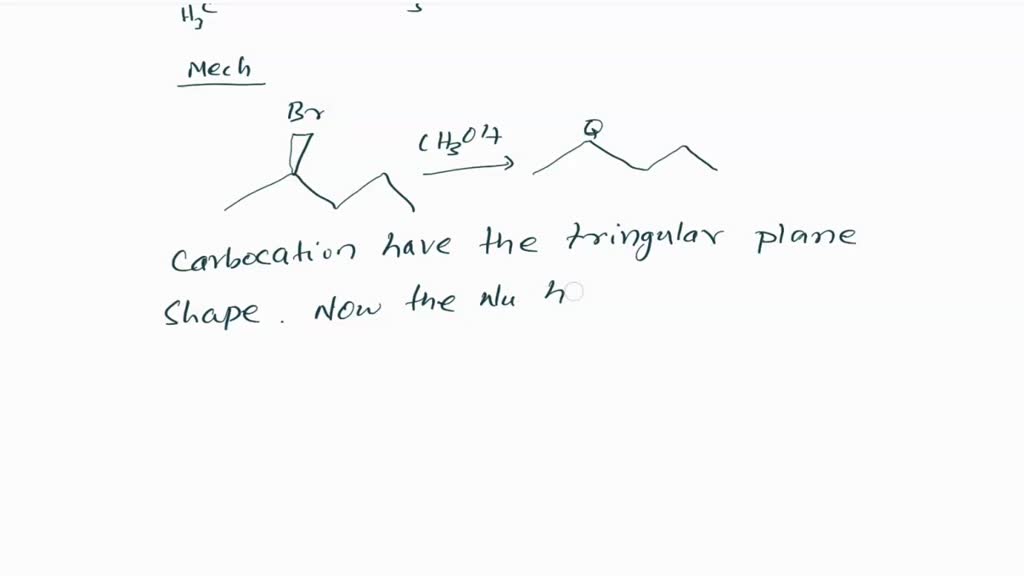 H3C 3
Mech
Br
CH3OH
⊕
Carbocation have the tringular plane
shape. Now the Nu h